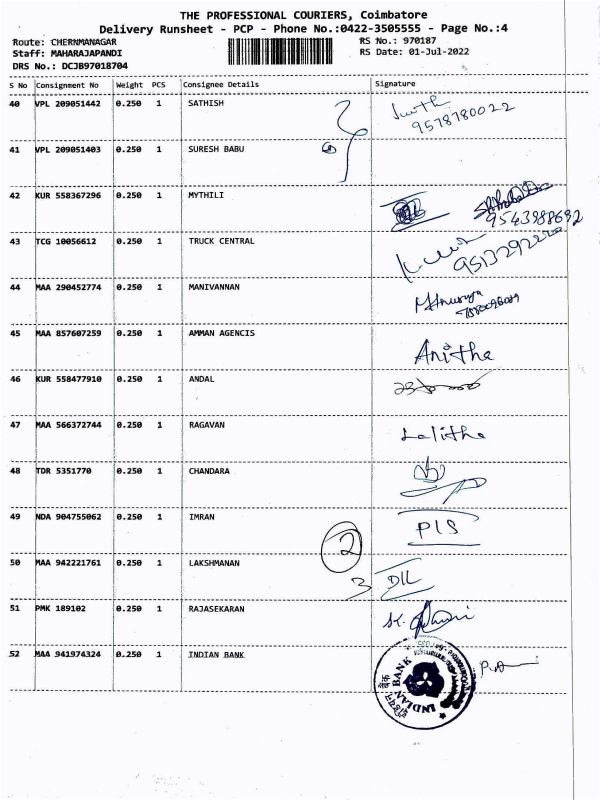 THE PROFESSIONAL COURIERS, Coimbatore
Delivery Runsheet - PCP - Phone No.:0422-3505555 - Page No.:4
Route: CHERNMANAGAR RS No.: 970187
Staff: MAHARAJAPANDI RS Date: 01-Jul-2022
DRS No.: DCJB97018704
S No Consignment No Weight PCS Consignee Details Signature
40 VPL 209051442 0.250 1 SATHISH
9578780022
41 VPL 209051403 0.250 1 SURESH BABU
42 KUR 558367296 0.250 1 MYTHILI
9543988692
43 TCG 10056612 0.250 1 TRUCK CENTRAL
44 MAA 290452774 0.250 1 MANIVANNAN
45 MAA 857607259 0.250 1 AMMAN AGENCIS
Anitha
46 KUR 558477910 0.250 1 ANDAL
47 MAA 566372744 0.250 1 RAGAVAN
Lalitha
48 TDR 5351770 0.250 1 CHANDARA
49 NDA 904755062 0.250 1 IMRAN PIS
2
50 MAA 942221761 0.250 1 LAKSHMANAN
3 DLL
51 PMK 189102 0.250 1 RAJASEKARAN
52 MAA 941974324 0.250 1 INDIAN BANK
INDIAN BANK